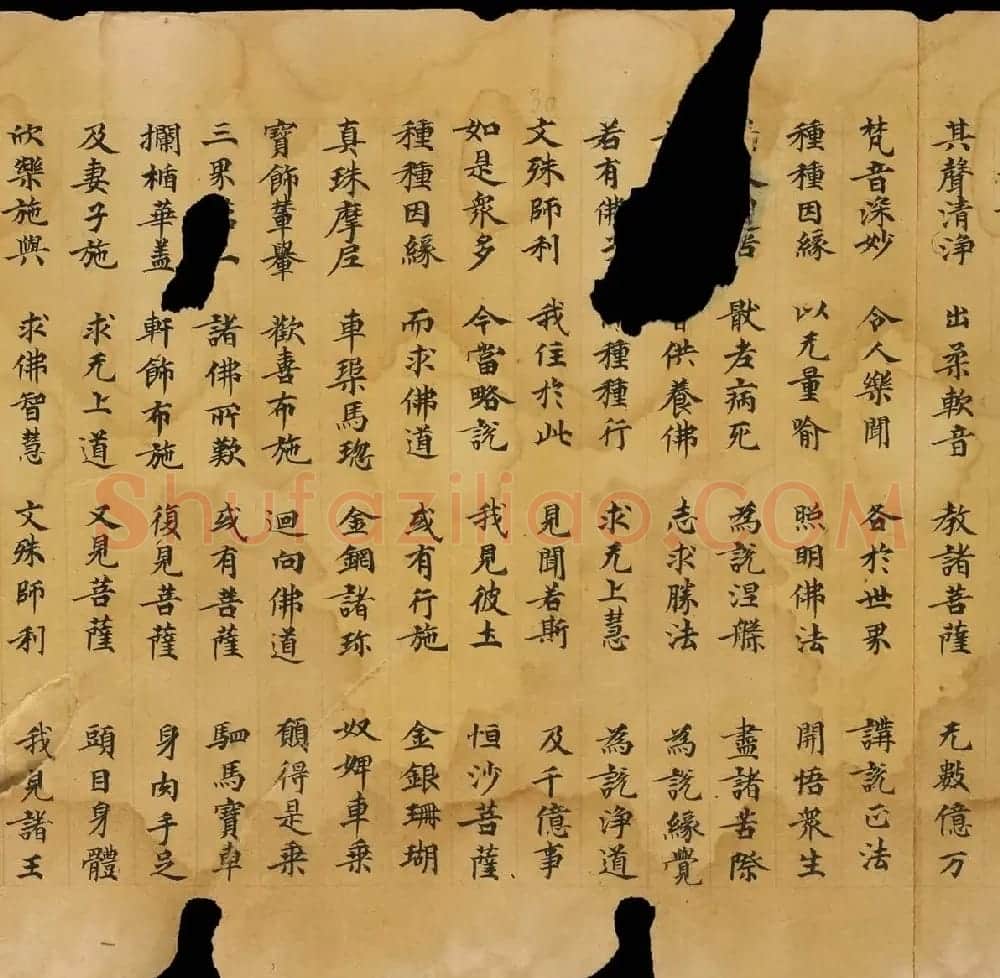 其聲清浄 出柔軟音 教諸菩薩 无數億万
梵音深妙 令人樂聞 各於世界 講說正法
種種因緣 以无量喻 照明佛法 開悟衆生
苦 厭老病死 為說涅槃 盡諸苦際
供養佛 志求勝法 為說緣覺
若有佛 種種行 求无上慧 為說浄道
文殊師利 我住於此 見聞若斯 及千億事
如是衆多 今當略說 我見彼土 恒沙菩薩
種種因緣 而求佛道 或有行施 金銀珊瑚
真珠摩尼 車璖馬瑙 金剛諸珎 奴婢車乘
寶飾輦轝 歡喜布施 迴向佛道 願得是乘
三界 諸佛所歎 或有菩薩 駟馬寶車
攔楯華盖 軒飾布施 復見菩薩 身肉手足
及妻子施 求无上道 又見菩薩 頭目身體
欣樂施與 求佛智慧 文殊師利 我見諸王
Shufaziliao.COM